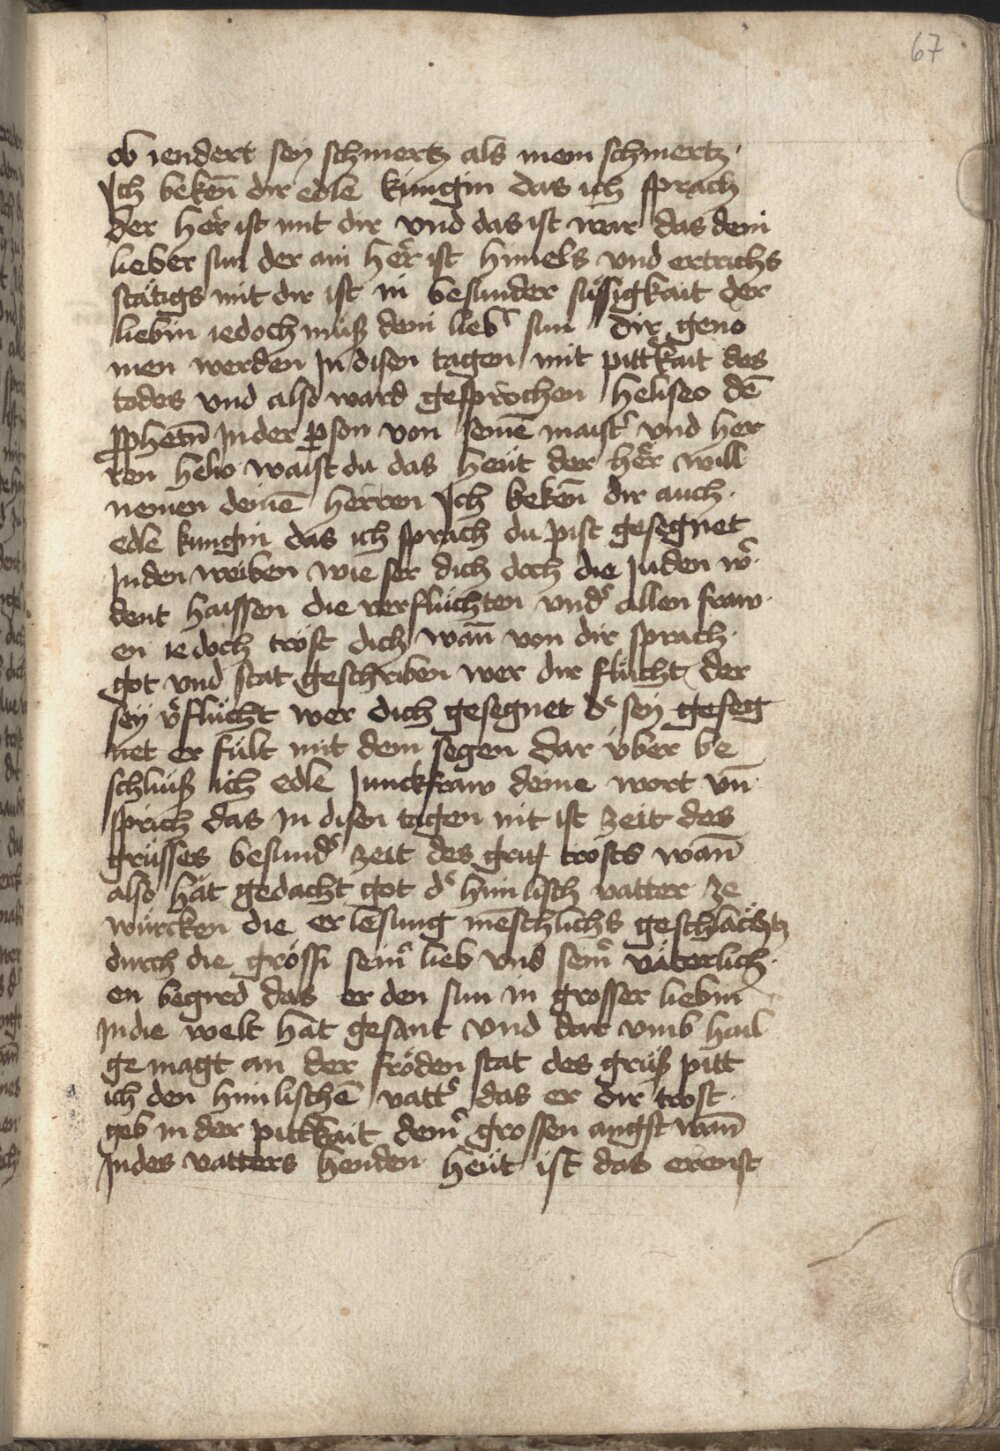 67
ob iendert sey schmertz als mein schmertz·
Ich beken̄ dir edle kungin das ich sprach
der her̄ ist mit dir vnd das ist war das dein
lieber sun der ain her̄ ist himels vnd ertrichs
stätigs mit dir ist in besunder süssigkait der
liebin iedoch müß dein lieb͛ sun dir geno
men werden In disen tagen mit pitt͛kait des
todes vnd also ward gesprochen heliseo dē
ꝓphetn̄ In der ꝑson von seinē maist͛ vnd her
ren helio waist du das heüt der her̄ will
nemen deinē herren Ich beken̄ dir auch·
edle kungin das ich sprach du pist gesegnet
In den weiben wie ser dich doch die Juden w͛·
dent haissen die verflüchten vnd͛ allen fraw·
en ie doch tröst dich wan̄ von dir sprach·
got vnd stat geschriben wer dir flücht der
sey v͛flücht wer dich gesegnet d͛ sey geseg
net er fült mit dem segen dar vber be
schlüß ich edle Junckfraw deine wort vn̄·
sprich das In disen tagen nit ist zeit des
grüsses besund͛ zeit des groß trosts wan̄
also hät gedacht got d͛ himlisch vatter ze
würcken die erlesung mēschlichs geschlächtz
durch die grössi sein͛ lieb vnd sein͛ väterlich·
en begird das er den sun in grosser liebin
In die welt hät gesant vnd dar vmb hail
ge magt an der fröden stat des grüß pitt
ich den himlischē vatt͛ das er dir trost·
geb in der pitt͛kait dein͛ grossen angst wan̄
In des vatters henden heüt ist das erenst